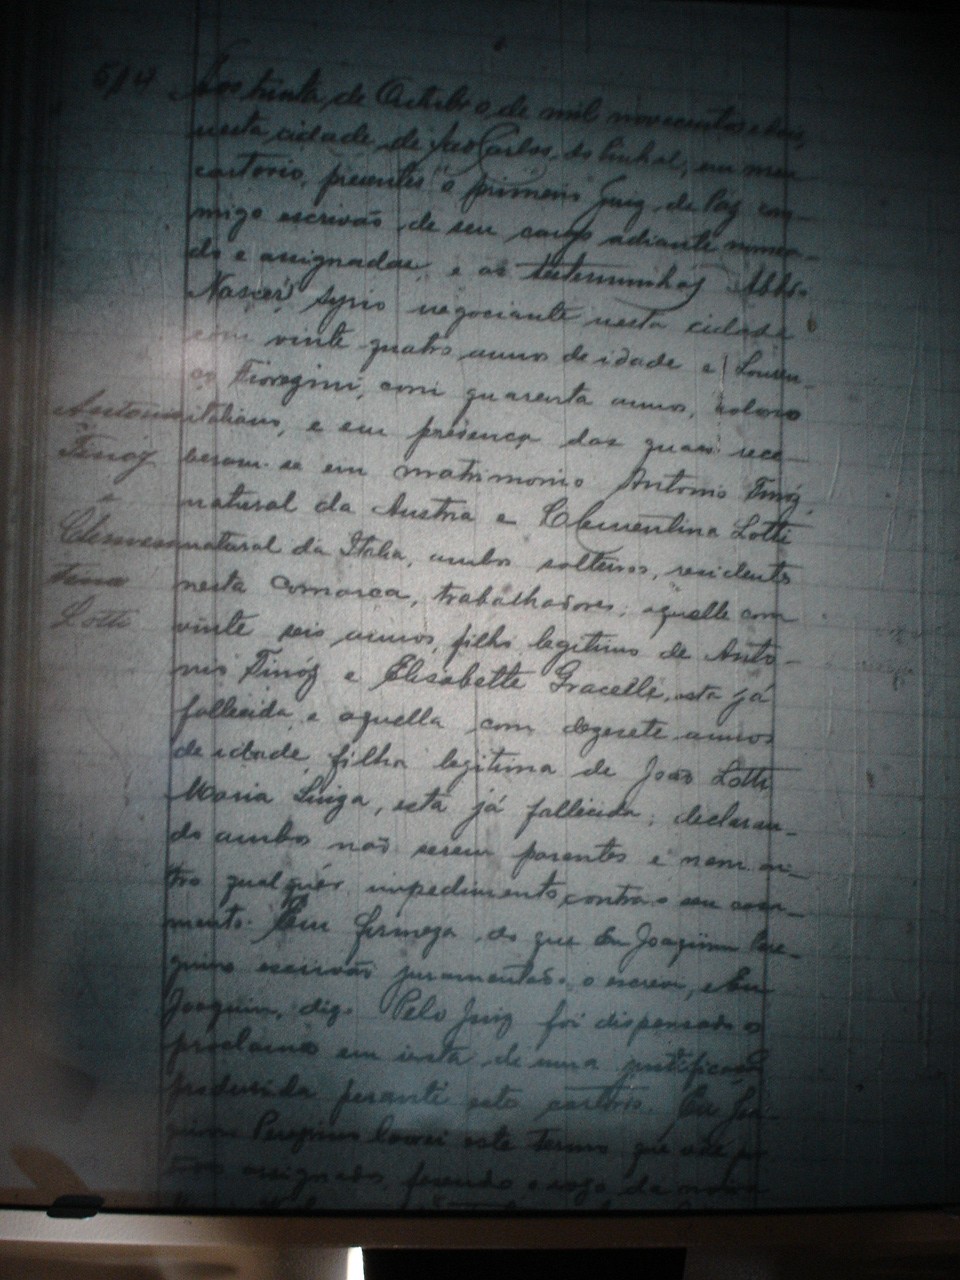 Aos trinta de Outubro de mil novecentos e
nesta cidade de São Carlos do Pinhal, em meu
cartorio, presentes o primeiro Juiz de Paz com-
migo escrivão de seu cargo adiante nomea-
do e assignado, e as testemunhas
syrio negociante nesta cidade
com vinte quatro annos de idade e Louren-
ço Fioregini, com quarenta annos, colono
italiano, e em presença das quaes rece-
beram-se em matrimonio Antonio Finóz
natural da Austria e Clementina Lotti
natural da Italia, ambos solteiros, residentes
nesta comarca, trabalhadores; aquelle com
vinte seis annos, filho legitimo de Anto-
nio Finóz e Elisabette Gracelli, esta já
fallecida, e aquella com dezesete annos
de idade, filha legitima de João Lotti
Maria Luiza, esta já fallecida; declaran-
do ambos não serem parentes e nem ou-
tro qualquér impedimento contra o seu casa-
mento. Em firmeza do que Eu Joaquim Pere-
grino escrivão juramentado o escrevi, e Eu
Joaquim, digo Pelo Juiz foi dispensado o
proclama em vista de uma justificação
produzida perante este cartorio. Eu Joa-
quim Peregrino lavrei este termo que vae por
assignado, fazendo a rogo da noiva
Antonio
Finóz
e
Clemen
tina
Lotti